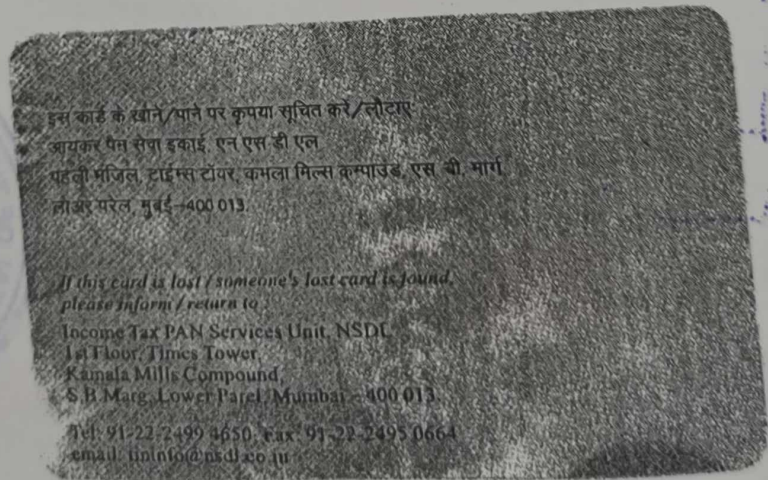 इस कार्ड के खोने/पाने पर कृपया सूचित करें/लौटाएं
आयकर पैन सेवा इकाई, एन एस डी एल
पहली मंजिल, टाईम्स टॉवर, कमला मिल्स कम्पाउंड, एस. बी. मार्ग,
लोअर परेल, मुंबई-400 013.
If this card is lost / someone's lost card is found,
please inform / return to :
Income Tax PAN Services Unit, NSDL
1st Floor, Times Tower,
Kamala Mills Compound,
S.B Marg, Lower Parel, Mumbai - 400 013.
Tel: 91-22-2499 4650, Fax: 91-22-2495 0664
email: tininfo@nsdl.co.in